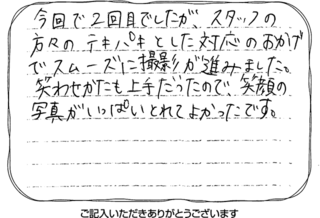 今回で2回目でしたが、スタッフの
方々のテキパキとした対応のおかげ
でスムーズに撮影が進みました。
笑わせかたも上手だったので、笑顔の
写真がいっぱいとれてよかったです。
ご記入いただきありがとうございます